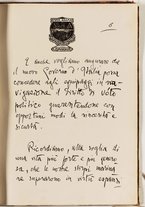 6
E anche vogliamo augurare che
il nuovo Governo d'Italia possa
concedere agli equipaggi in na-
vigazione il diritto di voto
politico garantendone con
opportuni modi la necessità e
sicurtà.
Ricordiamo, alla soglia di
una vita più forte e più genero-
sa, che le nostre stirpi marina-
re superarono in virtù